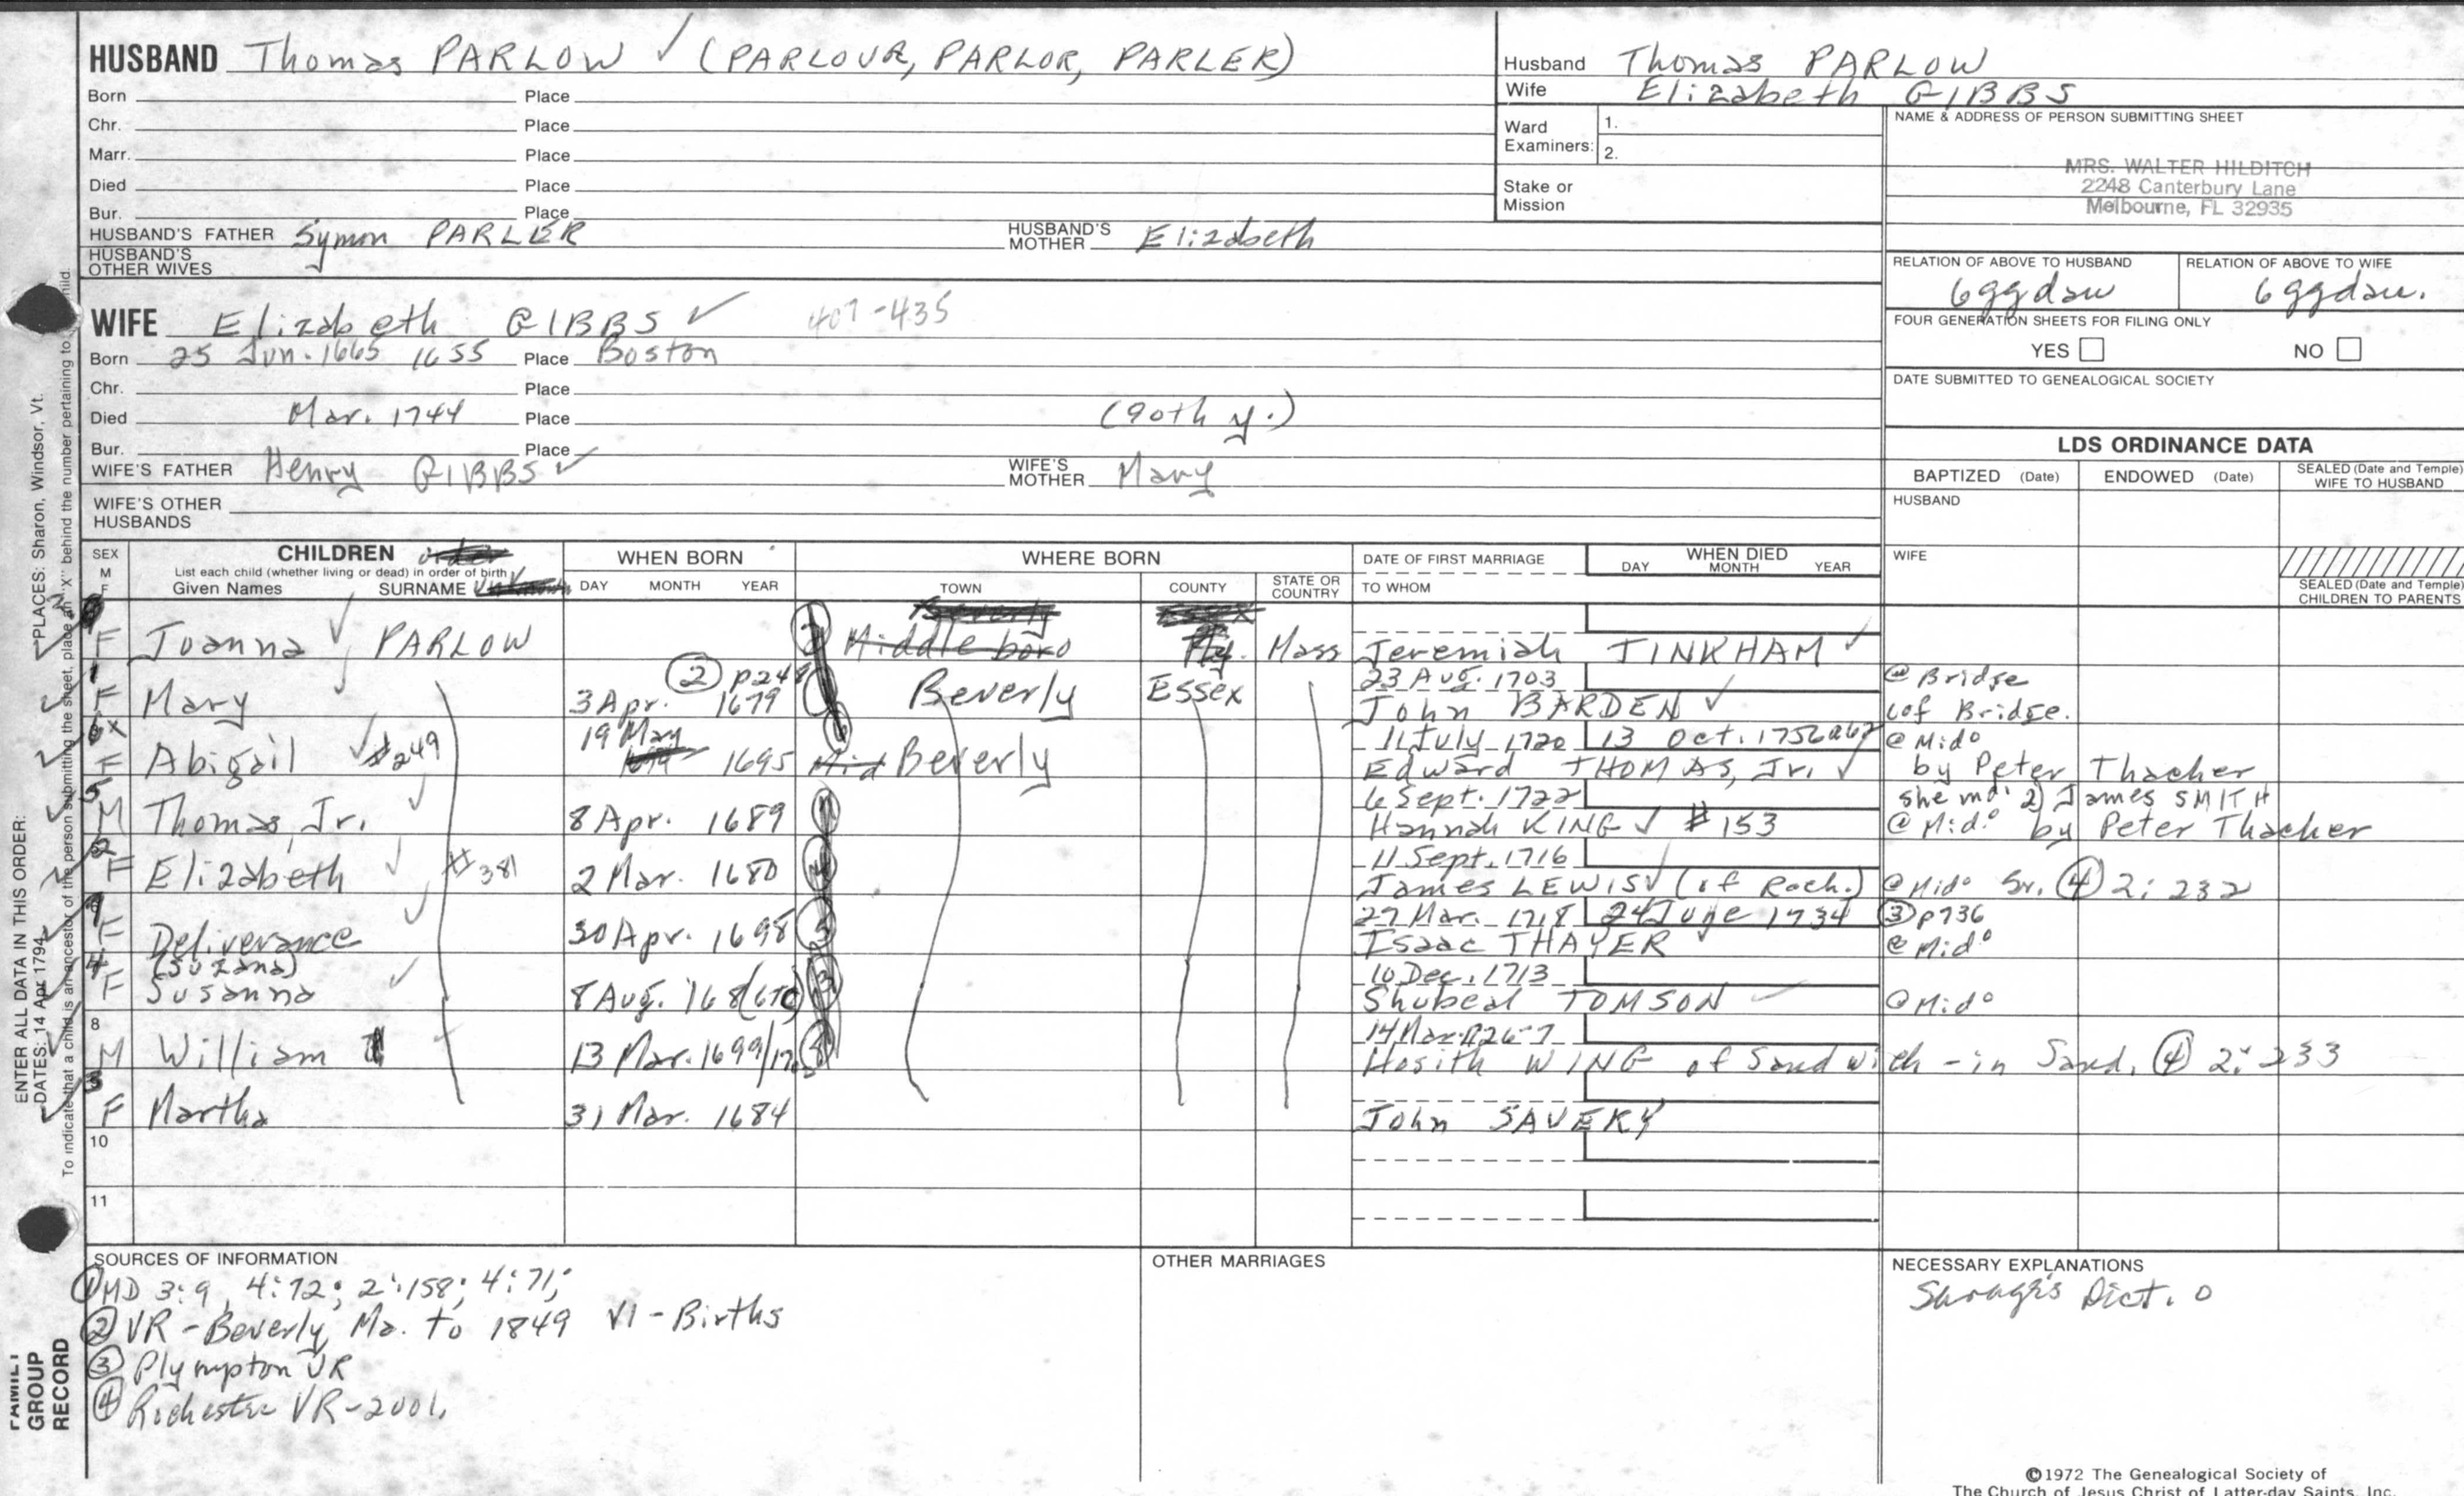 HUSBAND Thomas PARLOW ✓ (PARLOUR, PARLOR, PARLER)
Born Place
Chr. Place
Marr. Place
Died Place
Bur. Place
HUSBAND'S FATHER Symon PARLER HUSBAND'S MOTHER Elizabeth
HUSBAND'S OTHER WIVES
Husband Thomas PARLOW
Wife Elizabeth GIBBS
Ward Examiners: 1.
2.
Stake or Mission
NAME & ADDRESS OF PERSON SUBMITTING SHEET
MRS. WALTER HILDITCH
2248 Canterbury Lane
Melbourne, FL 32935
RELATION OF ABOVE TO HUSBAND RELATION OF ABOVE TO WIFE
6ggdau 6ggdau.
FOUR GENERATION SHEETS FOR FILING ONLY
YES NO
DATE SUBMITTED TO GENEALOGICAL SOCIETY
WIFE Elizabeth GIBBS ✓ 407-435
Born 25 Jun. 1665 1655 Place Boston
Chr. Place
Died Mar. 1744 Place (90th y.)
Bur. Place
WIFE'S FATHER Henry GIBBS ✓ WIFE'S MOTHER Mary
WIFE'S OTHER HUSBANDS
LDS ORDINANCE DATA
BAPTIZED (Date) ENDOWED (Date) SEALED (Date and Temple) WIFE TO HUSBAND
HUSBAND
WIFE
SEALED (Date and Temple) CHILDREN TO PARENTS
SEX M F CHILDREN order
List each child (whether living or dead) in order of birth
Given Names SURNAME
WHEN BORN DAY MONTH YEAR
WHERE BORN TOWN COUNTY STATE OR COUNTRY
DATE OF FIRST MARRIAGE TO WHOM
WHEN DIED DAY MONTH YEAR
Beverly Essex
F Joanna ✓ PARLOW Middleboro Ply. Mass Jeremiah TINKHAM ✓
② p248 23 Aug. 1703 @ Bridge
1 F Mary 3 Apr. 1679 Beverly Essex John BARDEN ✓ (of Bridge.
19 May 11 July 1720 13 Oct. 1756 @ Mido
6x F Abigail ✓ #249 1695 Mid Beverly Edward THOMAS, Jr. ✓ by Peter Thacher
6 Sept. 1722 she md. 2) James SMITH
5 M Thomas, Jr. ✓ 8 Apr. 1689 Hannah KING ✓ #153 @ Mido by Peter Thacher
11 Sept. 1716
2 F Elizabeth ✓ #381 2 Mar. 1680 James LEWIS ✓ (of Roch.) @ Mido Sr. ④ 2:232
27 Mar. 1718 24 June 1734 ③ p736
F Deliverance ✓ 30 Apr. 1698 Isaac THAYER ✓ @ Mido
4 (Suzana) 10 Dec. 1713
F Susanna ✓ 8 Aug. 168(6 Shubeal TOMSON ✓ @ Mido
8 14 Mar. 1726-7
M William 13 Mar. 1699/17 Hosith WING of Sandwich - in Sand. ④ 2:233
3 F Martha 31 Mar. 1684 John SAVERY
10
11
SOURCES OF INFORMATION
① MD 3:9, 4:72; 2:158; 4:71;
② VR - Beverly, Ma. to 1849 V1 - Births
③ Plympton VR
④ Rochester VR-2001.
OTHER MARRIAGES
NECESSARY EXPLANATIONS
Savage's Dict. o
©1972 The Genealogical Society of
The Church of Jesus Christ of Latter-day Saints, Inc.
ENTER ALL DATA IN THIS ORDER:
DATES: 14 Apr 1794
PLACES: Sharon, Windsor, Vt.
To indicate that a child is an ancestor of the person submitting the sheet, place an "X" behind the number pertaining to child.
FAMILY GROUP RECORD